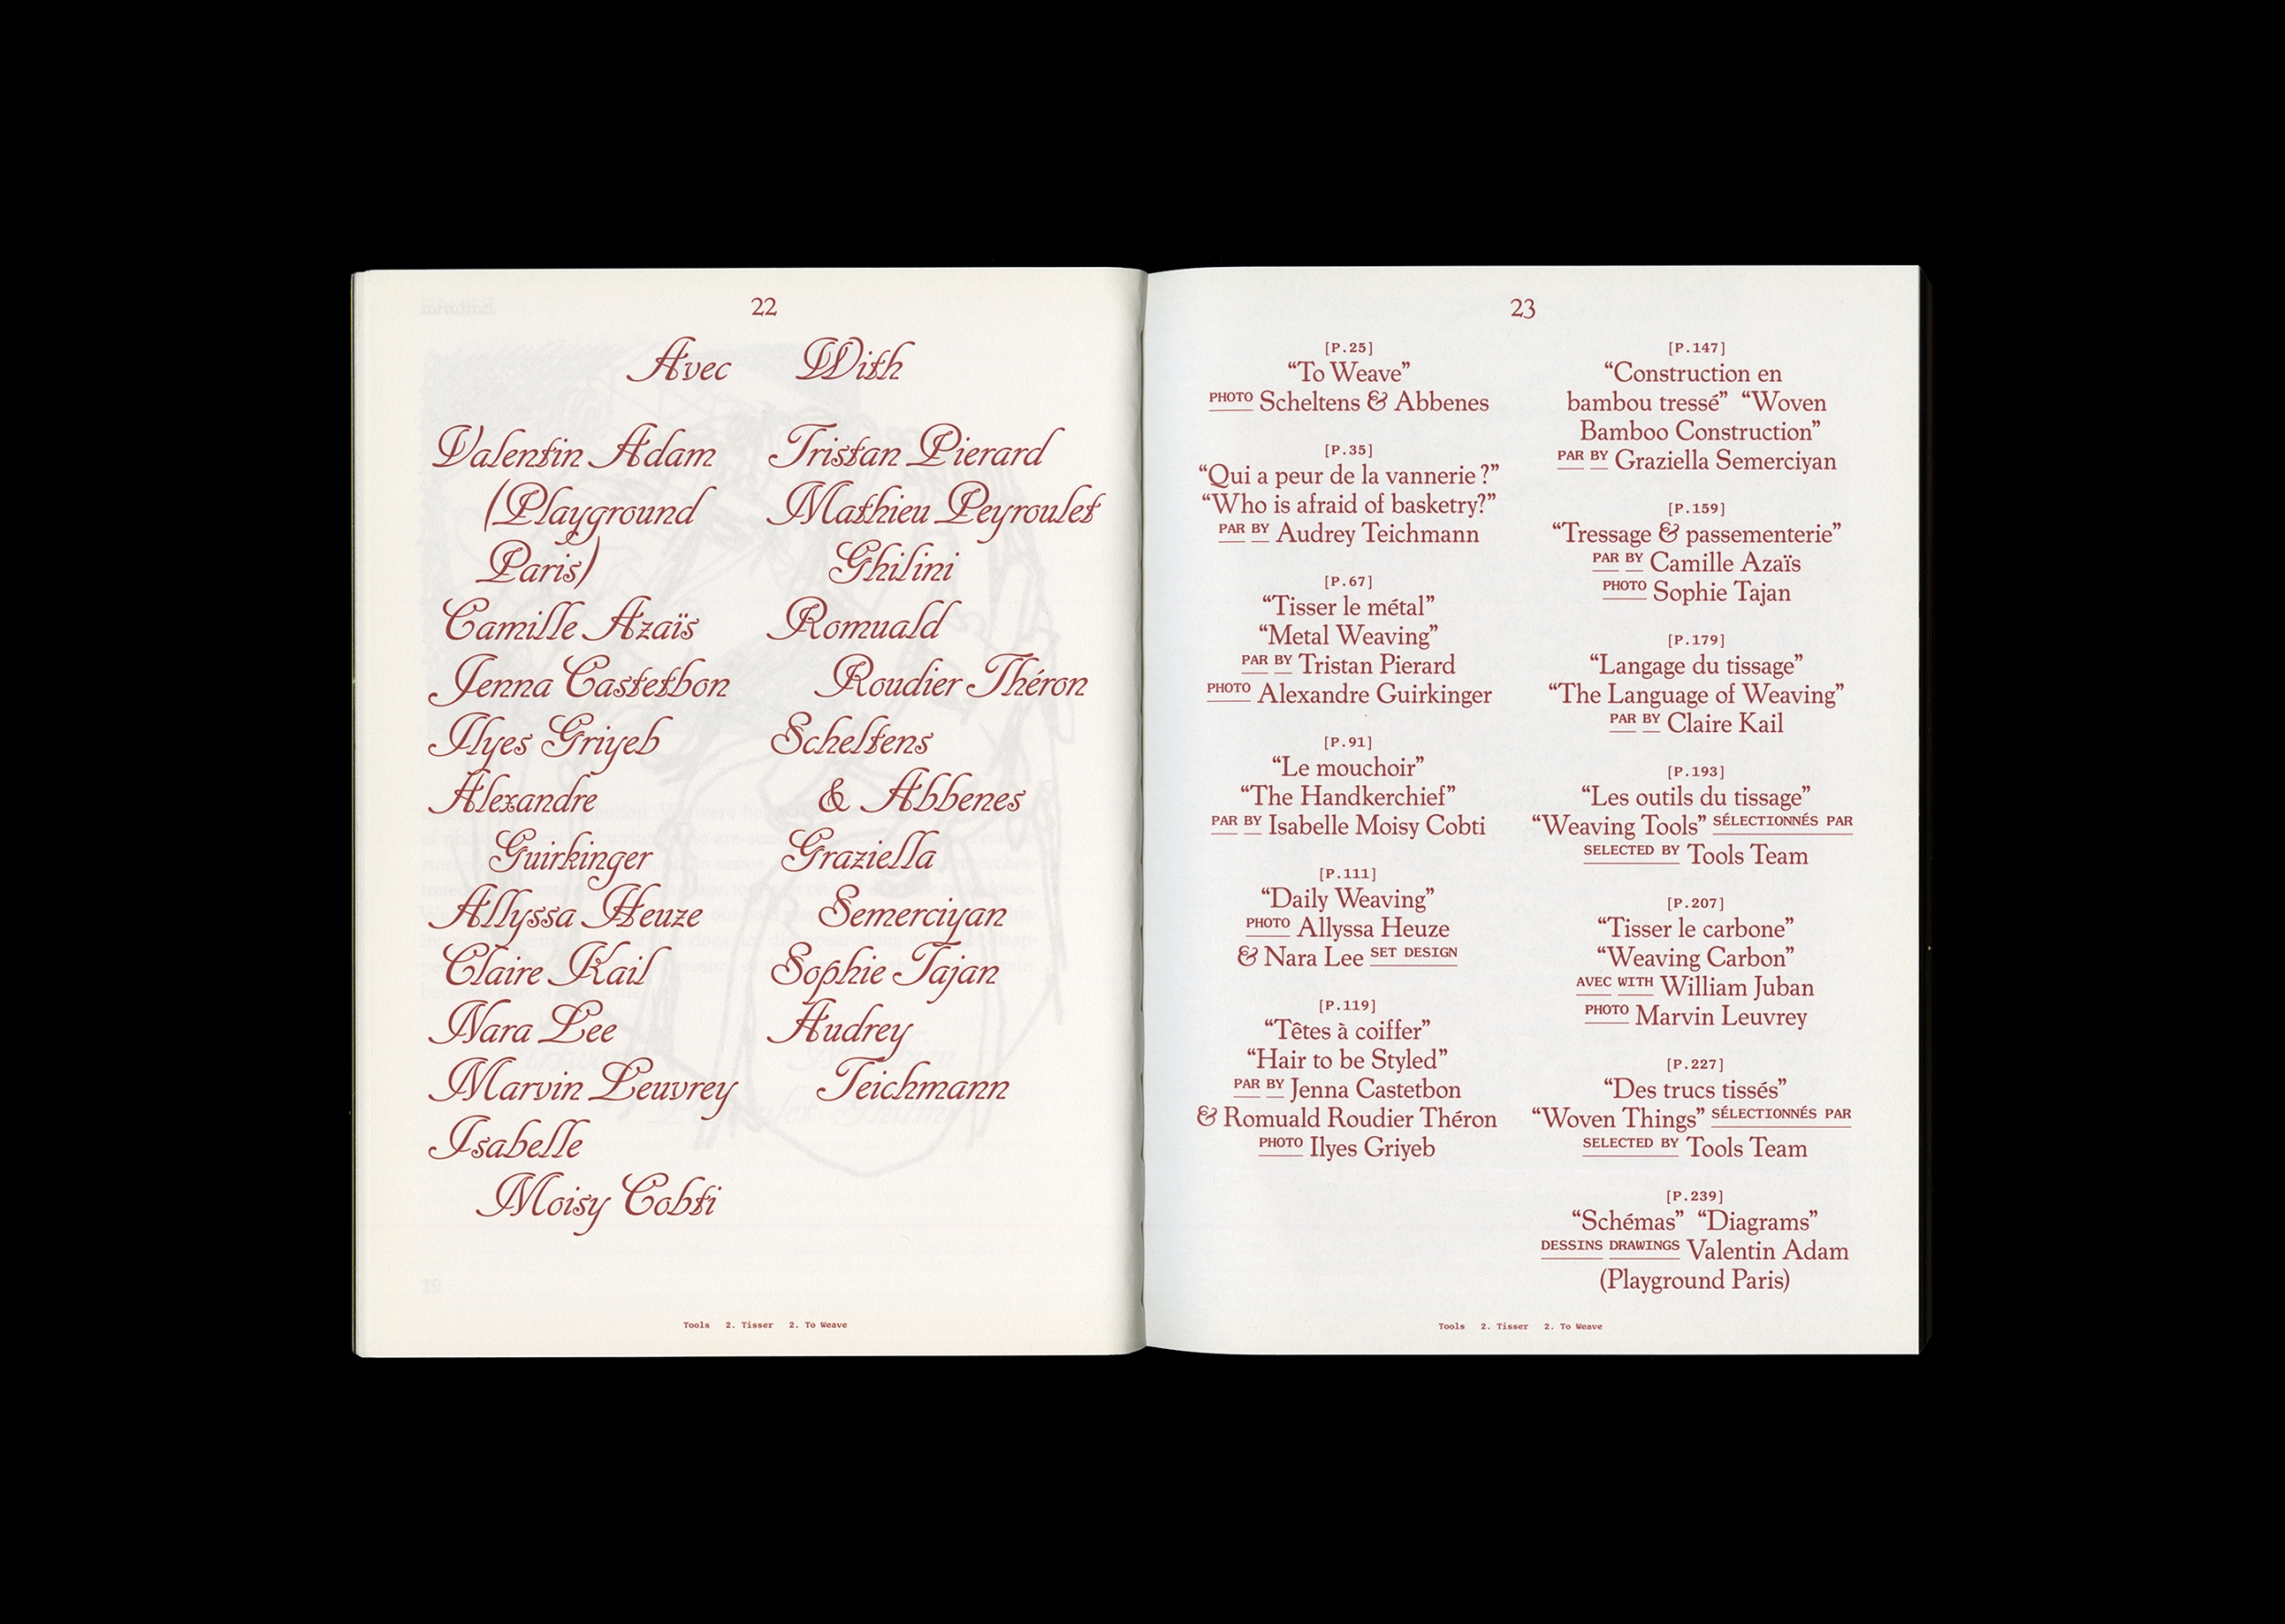 22
Avec With
Valentin Adam
(Playground
Paris)
Camille Azaïs
Jenna Castetbon
Ilyes Griyeb
Alexandre
Guirkinger
Allyssa Heuze
Claire Kail
Nara Lee
Marvin Leuvrey
Isabelle
Moisy Cobti
Tristan Pierard
Mathieu Peyroulet
Ghilini
Romuald
Roudier Théron
Scheltens
& Abbenes
Graziella
Semerciyan
Sophie Tajan
Audrey
Teichmann
Tools 2. Tisser 2. To Weave
23
[P.25]
“To Weave”
PHOTO Scheltens & Abbenes
[P.35]
“Qui a peur de la vannerie ?”
“Who is afraid of basketry?”
PAR BY Audrey Teichmann
[P.67]
“Tisser le métal”
“Metal Weaving”
PAR BY Tristan Pierard
PHOTO Alexandre Guirkinger
[P.91]
“Le mouchoir”
“The Handkerchief”
PAR BY Isabelle Moisy Cobti
[P.111]
“Daily Weaving”
PHOTO Allyssa Heuze
& Nara Lee SET DESIGN
[P.119]
“Têtes à coiffer”
“Hair to be Styled”
PAR BY Jenna Castetbon
& Romuald Roudier Théron
PHOTO Ilyes Griyeb
[P.147]
“Construction en
bambou tressé” “Woven
Bamboo Construction”
PAR BY Graziella Semerciyan
[P.159]
“Tressage & passementerie”
PAR BY Camille Azaïs
PHOTO Sophie Tajan
[P.179]
“Langage du tissage”
“The Language of Weaving”
PAR BY Claire Kail
[P.193]
“Les outils du tissage”
“Weaving Tools” SÉLECTIONNÉS PAR
SELECTED BY Tools Team
[P.207]
“Tisser le carbone”
“Weaving Carbon”
AVEC WITH William Juban
PHOTO Marvin Leuvrey
[P.227]
“Des trucs tissés”
“Woven Things” SÉLECTIONNÉS PAR
SELECTED BY Tools Team
[P.239]
“Schémas” “Diagrams”
DESSINS DRAWINGS Valentin Adam
(Playground Paris)
Tools 2. Tisser 2. To Weave